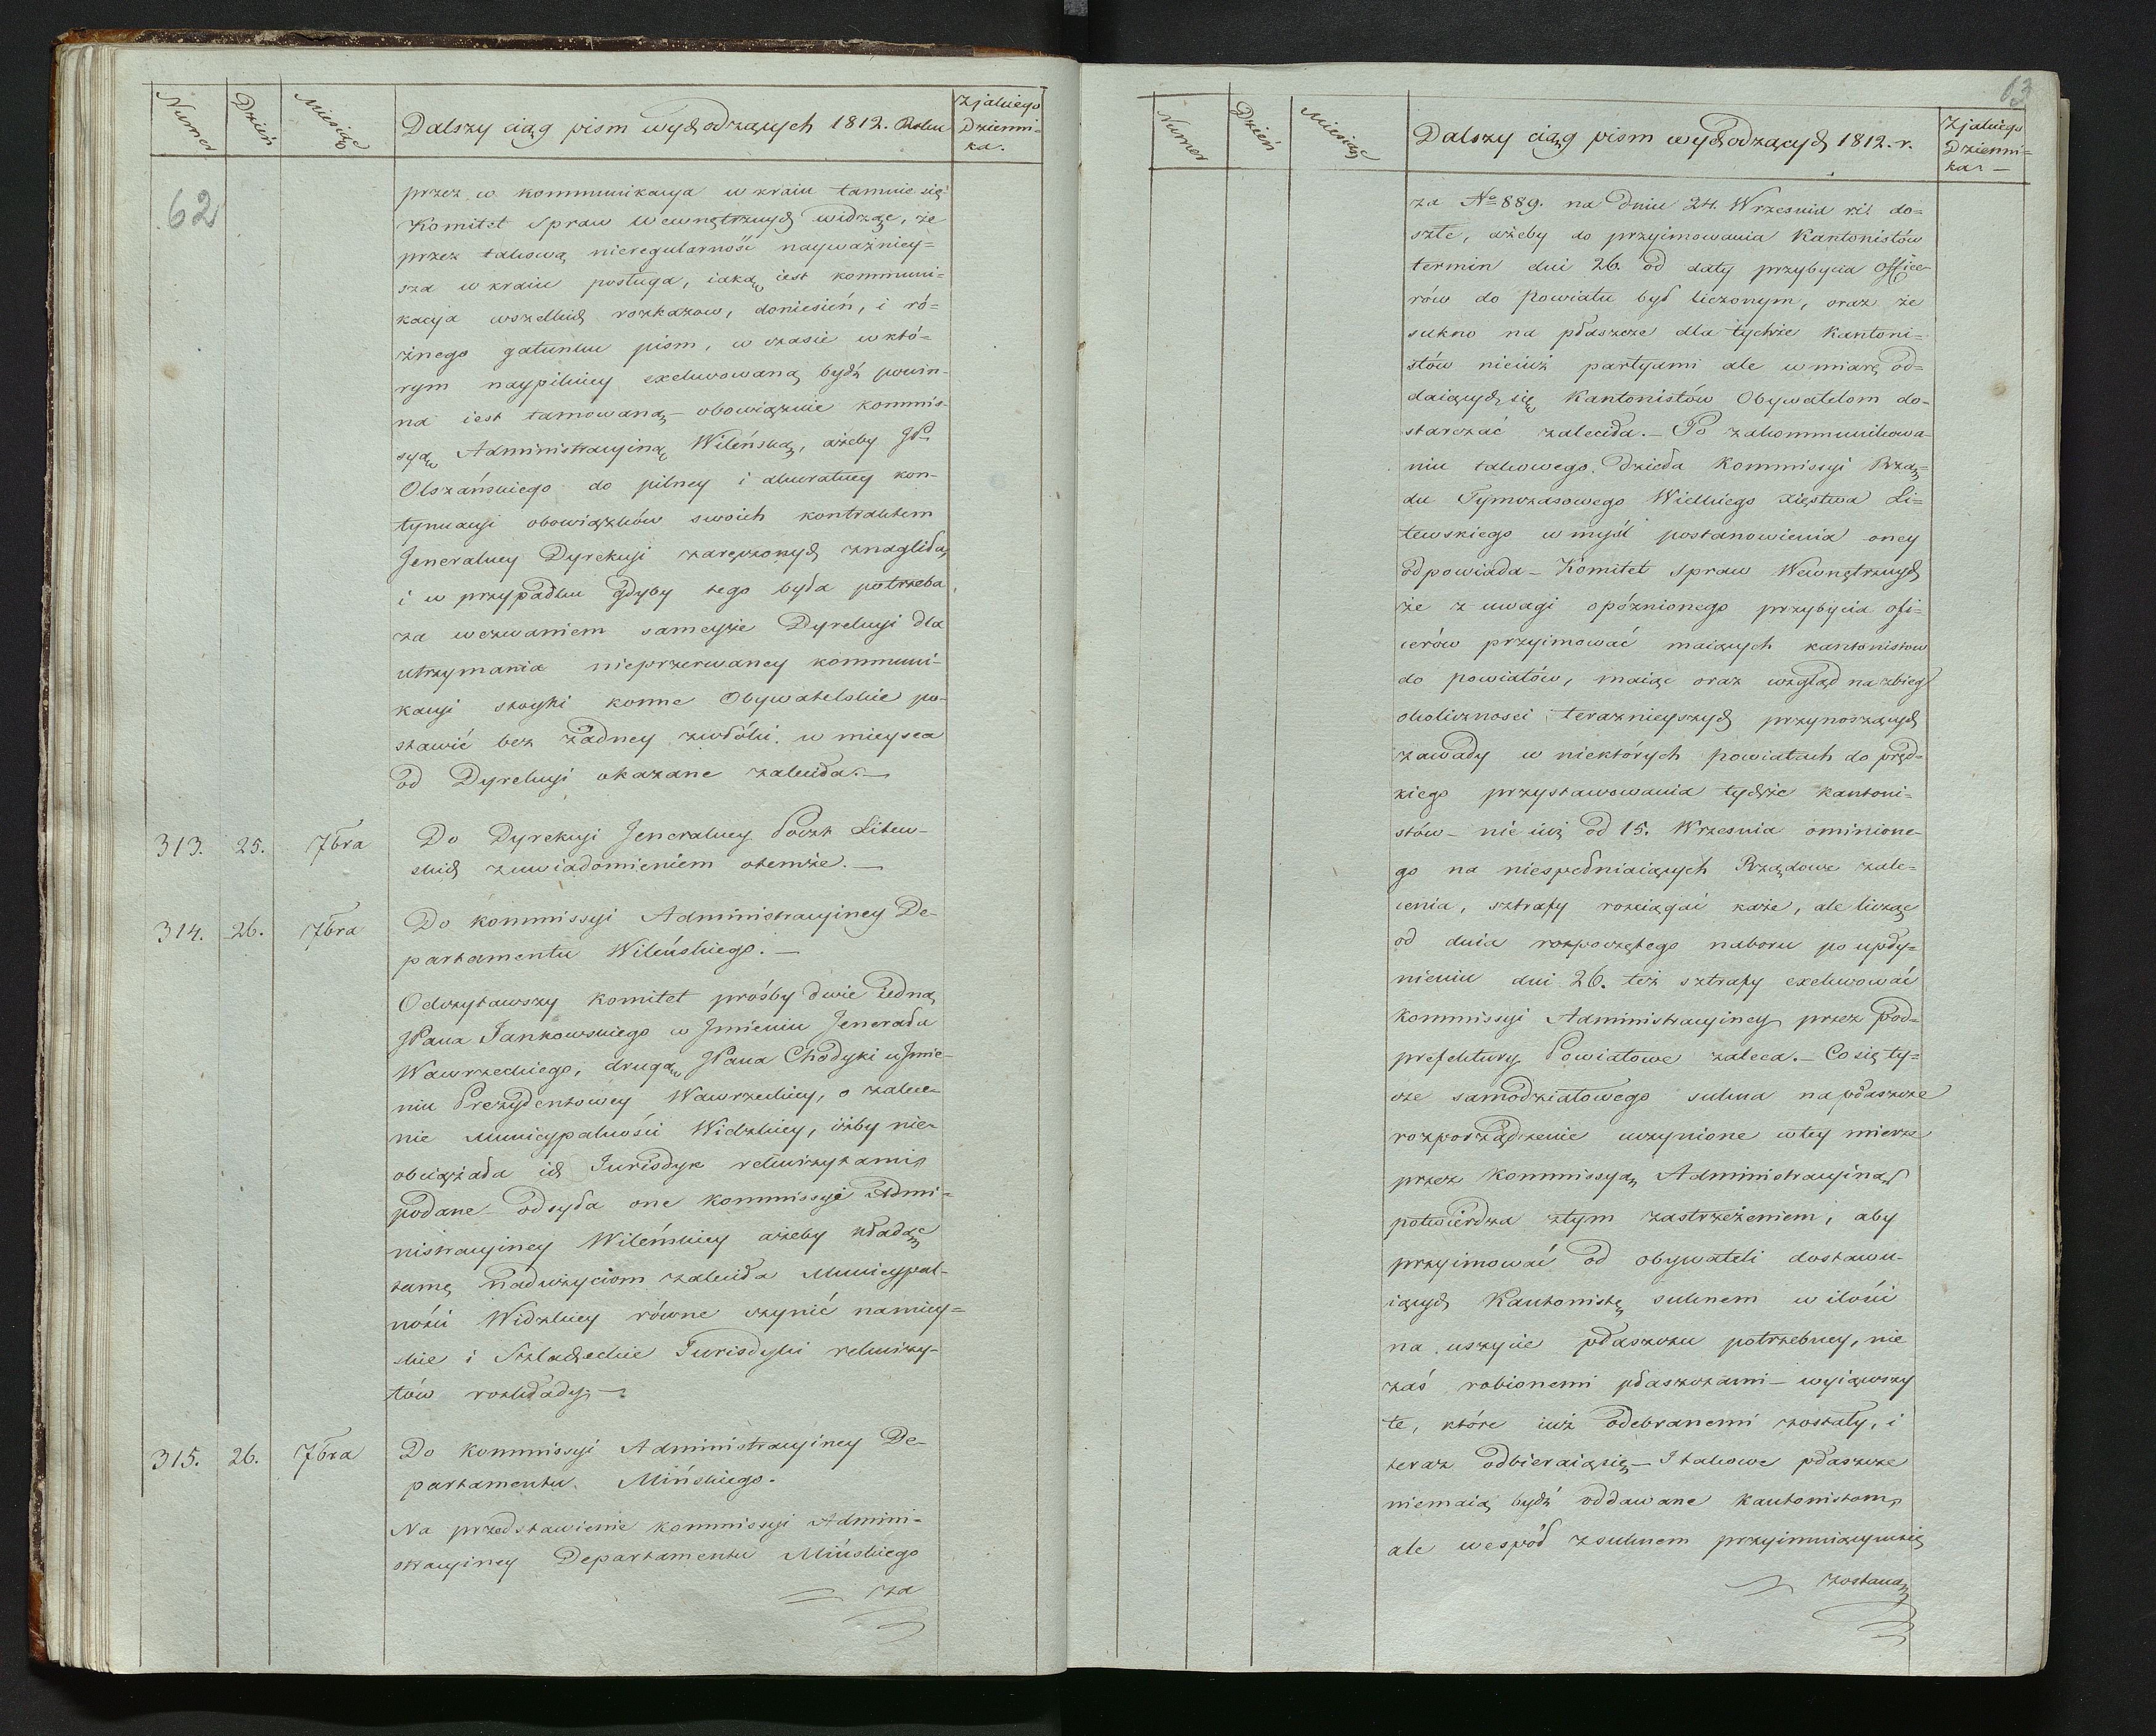 Numer
Dzień
Miesiąc
Dalszy ciąg pism wychodzących 1812. Roku
Zjakiego
Dzienni-
ka.
62
przez co kommunikacya w kraiu tamuie się
Komitet Spraw Wewnętrznych widząc, że
przez takową nieregularność nayważniey-
sza w kraiu posługa, iaką iest kommuni-
kacya wszelkich rozkazow, doniesień, i ró-
żnego gatunku pism, w czasie w któ-
rym naypilniey exekwowaną bydź powin-
na iest tamowaną – obowiązuie kommis-
syą Administracyiną Wileńską, ażeby JP.
Olszańskiego do pilney i akuratney kon-
tynuacyi obowiązków swoich kontraktem
Jeneralney Dyrekcyi zaręczonych znagliła,
i w przypadku gdyby tego była potrzeba
za wezwaniem sameyże Dyrekcyi dla
utrzymania nieprzerwaney kommuni-
kacyi stoyki konne Obywatelskie po-
stawić bez żadney zwłóki w mieysca
od Dyrekcyi okazane zaleciła. –
313. 25. 7bra Do Dyrekcyi Jeneralney Poczt Litew-
skich z uwiadomieniem otemże. –
314. 26. 7bra Do kommissyi Administracyiney De-
partamentu Wileńskiego. –
Odczytawszy komitet prośby dwie iedną
JPana Jankowskiego w Jmieniu Jenerała
Wawrzeckiego, drugą JPana Chodyki w Jmie-
niu Prezydentowey Wawrzeckiey, o zalece-
nie Municypalności Widzkiey, iżby nie-
obciążała ich Jurisdyk rekwizytami
podane – odsyła one kommissyi Admi-
nistracyiney Wileńskiey ażeby kładąc
tamę nadużyciom zaleciła Municypal-
ności Widzkiey równe czynić namiey-
skie i Szlacheckie Jurisdyki rekwizy-
tów rozkłady. –
315. 26. 7bra Do Kommissyi Administracyiney De-
partamentu Mińskiego.
Na przedstawienie kommissyi Admini-
stracyiney Departamentu Mińskiego
za
63
Numer
Dzień
Miesiąc
Dalszy ciąg pism wychodzących 1812. r.
Zjakiego
Dzienni-
ka. –
za No 889. na dniu 24. Wrzesnia do-
szłe, ażeby do przyimowania Kantonistów
termin dni 26. od daty przybycia Office-
rów do Powiatu był liczonym, oraz że
sukno na płaszcze dla tychże Kantoni-
stów nieiuż partyami ale w miarę od-
daiących się Kantonistów Obywatelom do-
starczać zaleciła. – Po zakommunikowa-
niu takowego dzieła Kommissyi Rzą-
du Tymczasowego Wielkiego Xięstwa Li-
tewskiego w myśl postanowienia oney
odpowiada – Komitet Spraw Wewnętrznych
że z uwagi opóźnionego przybycia ofi-
cerów przyimować maiących kantonistow
do powiatów, maiąc oraz wzgląd na zbieg
okoliczności teraznieyszych przynoszących
zawady w niektórych powiatach do pręd-
kiego przystawowania tychże kantoni-
stów – nie iuż od 15. Wrzesnia ominione-
go na niespełniaiących Rządowe zale-
cenia, sztrafy rozciągać każe, ale licząc
od dnia rozpoczętego naboru po upły-
nieniu dni 26. też sztrafy exekwować
Kommissyi Administracyiney przez Pod-
prefektury Powiatowe zaleca. – Co się ty-
cze samodziałowego sukna na płaszcze
rozporządzenie uczynione w tey mierze
przez Kommissyą Administracyiną
potwierdza z tym zastrzeżeniem, aby
przyimować od obywateli dostawu-
iących Kantonistę suknem w ilości
na uszycie płaszczu potrzebney, nie
zaś robionemi płaszczami – wyiąwszy
te, które iuż odebranemi zostały, i
teraz odbieraią się – I takowe płaszcze
niemaią bydź oddawane kantonistom,
ale wespół z suknem przyimuiącym się
zostaną